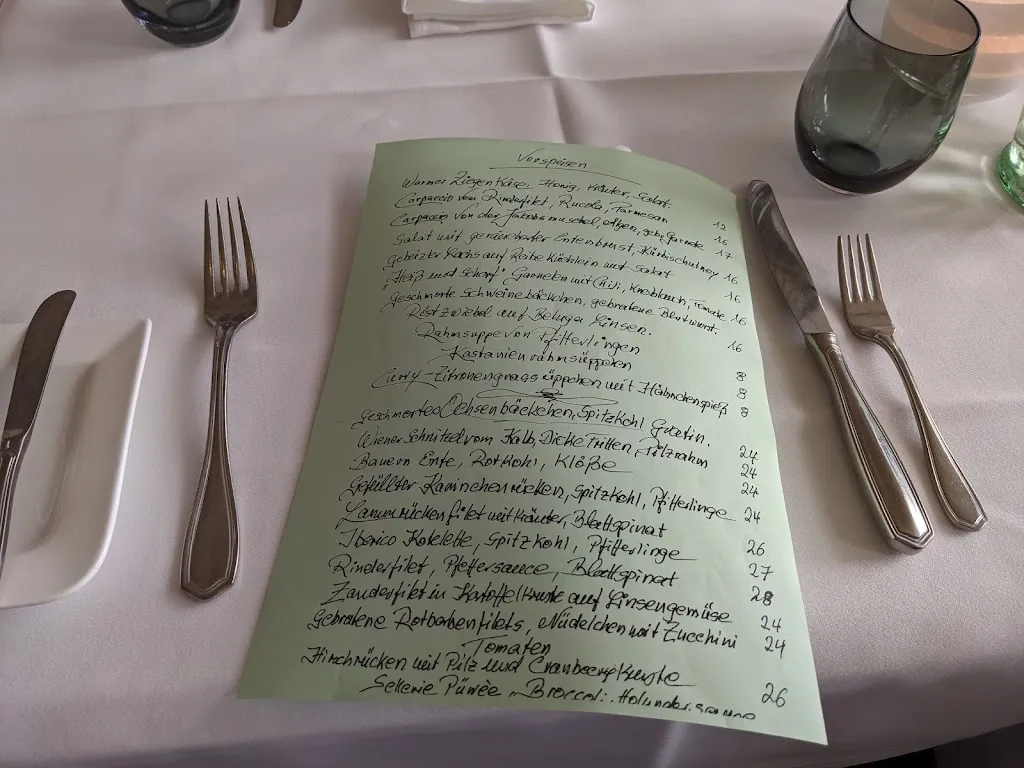 Vorspeisen
Warmer Ziegenkäse, Honig, Kräuter, Salat 12
Carpaccio vom Rinderfilet, Rucola, Parmesan 16
Carpaccio von der Jakobsmuschel, gebr. Garnele 17
Salat mit geräucherter Entenbrust, Kürbischutney 16
gebeizter Lachs auf Reibeküchlein mit Salat 16
"Heiß und Scharf" Garnelen mit Chili, Knoblauch, Tomate 16
geschmorte Schweinebäckchen, gebratene Blutwurst,
Röstzwiebel auf Beluga Linsen. 16
Rahmsuppe von Pfifferlingen 8
Kastanienrahmsüppchen 8
Curry-Zitronengrassüppchen mit Hähnchenspieß 8
geschmortes Ochsenbäckchen, Spitzkohl Gratin. 24
Wiener Schnitzel vom Kalb, Dicke Fritten, Pilzrahm 24
Bauern Ente, Rotkohl, Klöße 24
Gefüllter Kaninchenrücken, Spitzkohl, Pfifferlinge 24
Lammrückenfilet mit Kräuter, Blattspinat 26
Iberico Kotelette, Spitzkohl, Pfifferlinge 27
Rinderfilet, Pfeffersauce, Blattspinat 28
Zanderfilet in Kartoffelkruste auf Linsengemüse 24
Gebratene Rotbarbenfilets, Nüdelchen mit Zucchini 24
Tomaten
Hirschrücken mit Pilz und Cranberrykruste 26
Sellerie Pürèe, Broccoli, Holunder